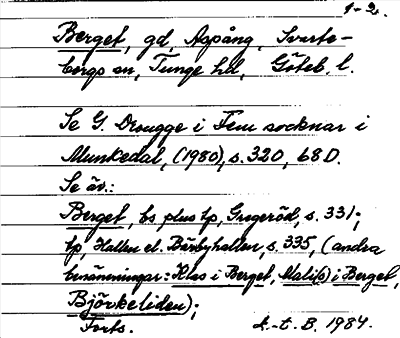 1-2.
Berget, gd, Aspång, Svarte-
borgs sn, Tunge hd, Göteb. l.
Se G. Drougge i Fem socknar i
Munkedal, (1980), s. 320, 68 D.
Se äv.:
Berget, bs plus tp, Gregeröd, s. 331;
tp, Hallen el. Bärbyhallen, s. 335, (andra
benämningar: Klas i Berget, Mali(s) i Berget,
Björkeliden);
Forts. A.-t. B. 1984.